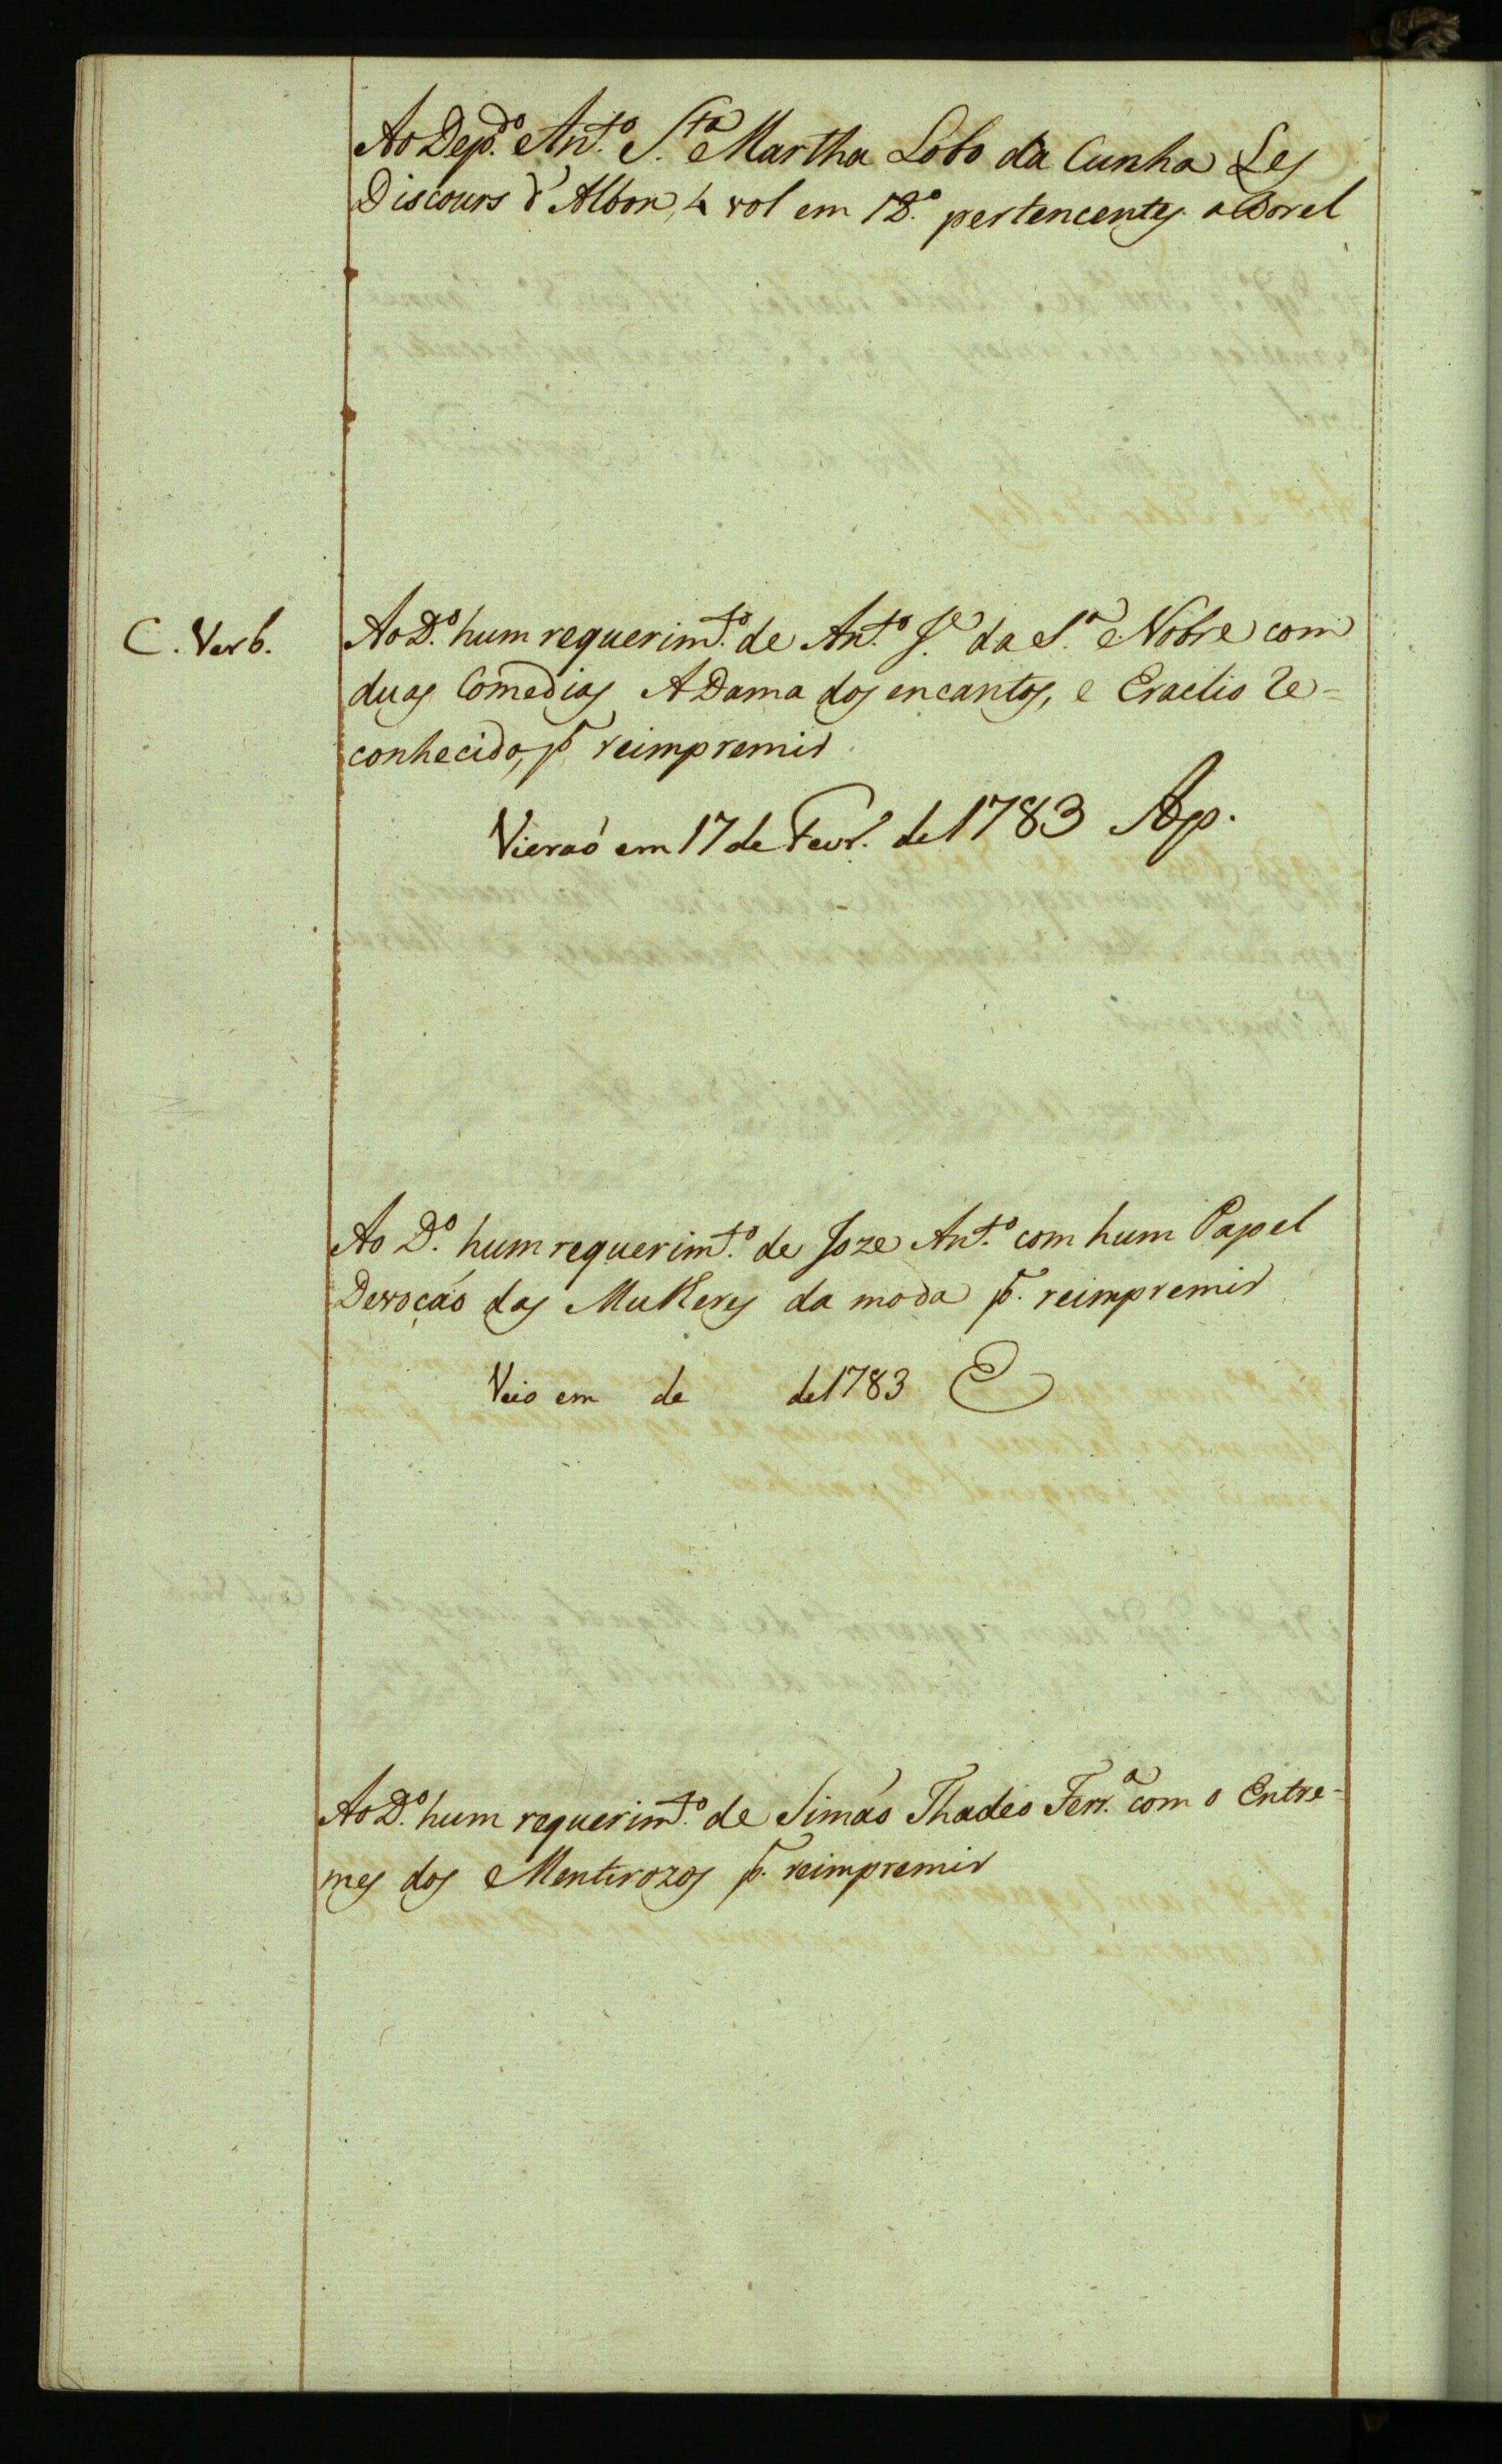 Ao Dep.do Ant.o S.ta Martha Lobo da Cunha Les
Discours d'Albon, 4 vol em 18.o pertencentes a Borel
C. Verb.
Ao D.o hum requerim.to de Ant.o J.e da S.a Nobre com
duas Comedias A Dama dos encantos, e Eraclio Re=
conhecido, p.a reimpremir
Vieraó em 17 de Fevr.o de 1783 Ap.
Ao D.o hum requerim.to de Joze Ant.o com hum Papel
Devoçaó das Mulheres da moda p.a reimpremir
Veio em de de 1783 E
Ao D.o hum requerim.to de Simaó Thadeo Ferr.a com o Entre=
mes dos Mentirozos p.a reimpremir